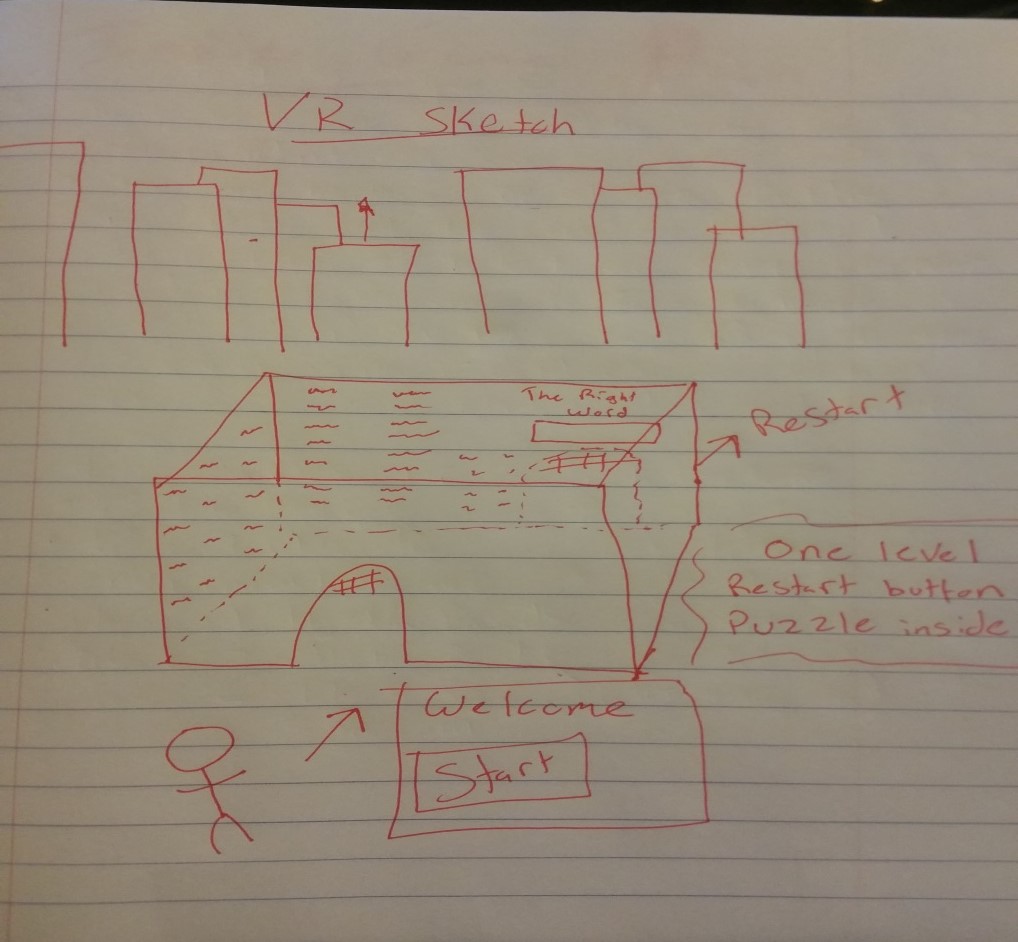 VR Sketch
The Right
Word
Restart
One level
Restart button
Puzzle inside
Welcome
Start